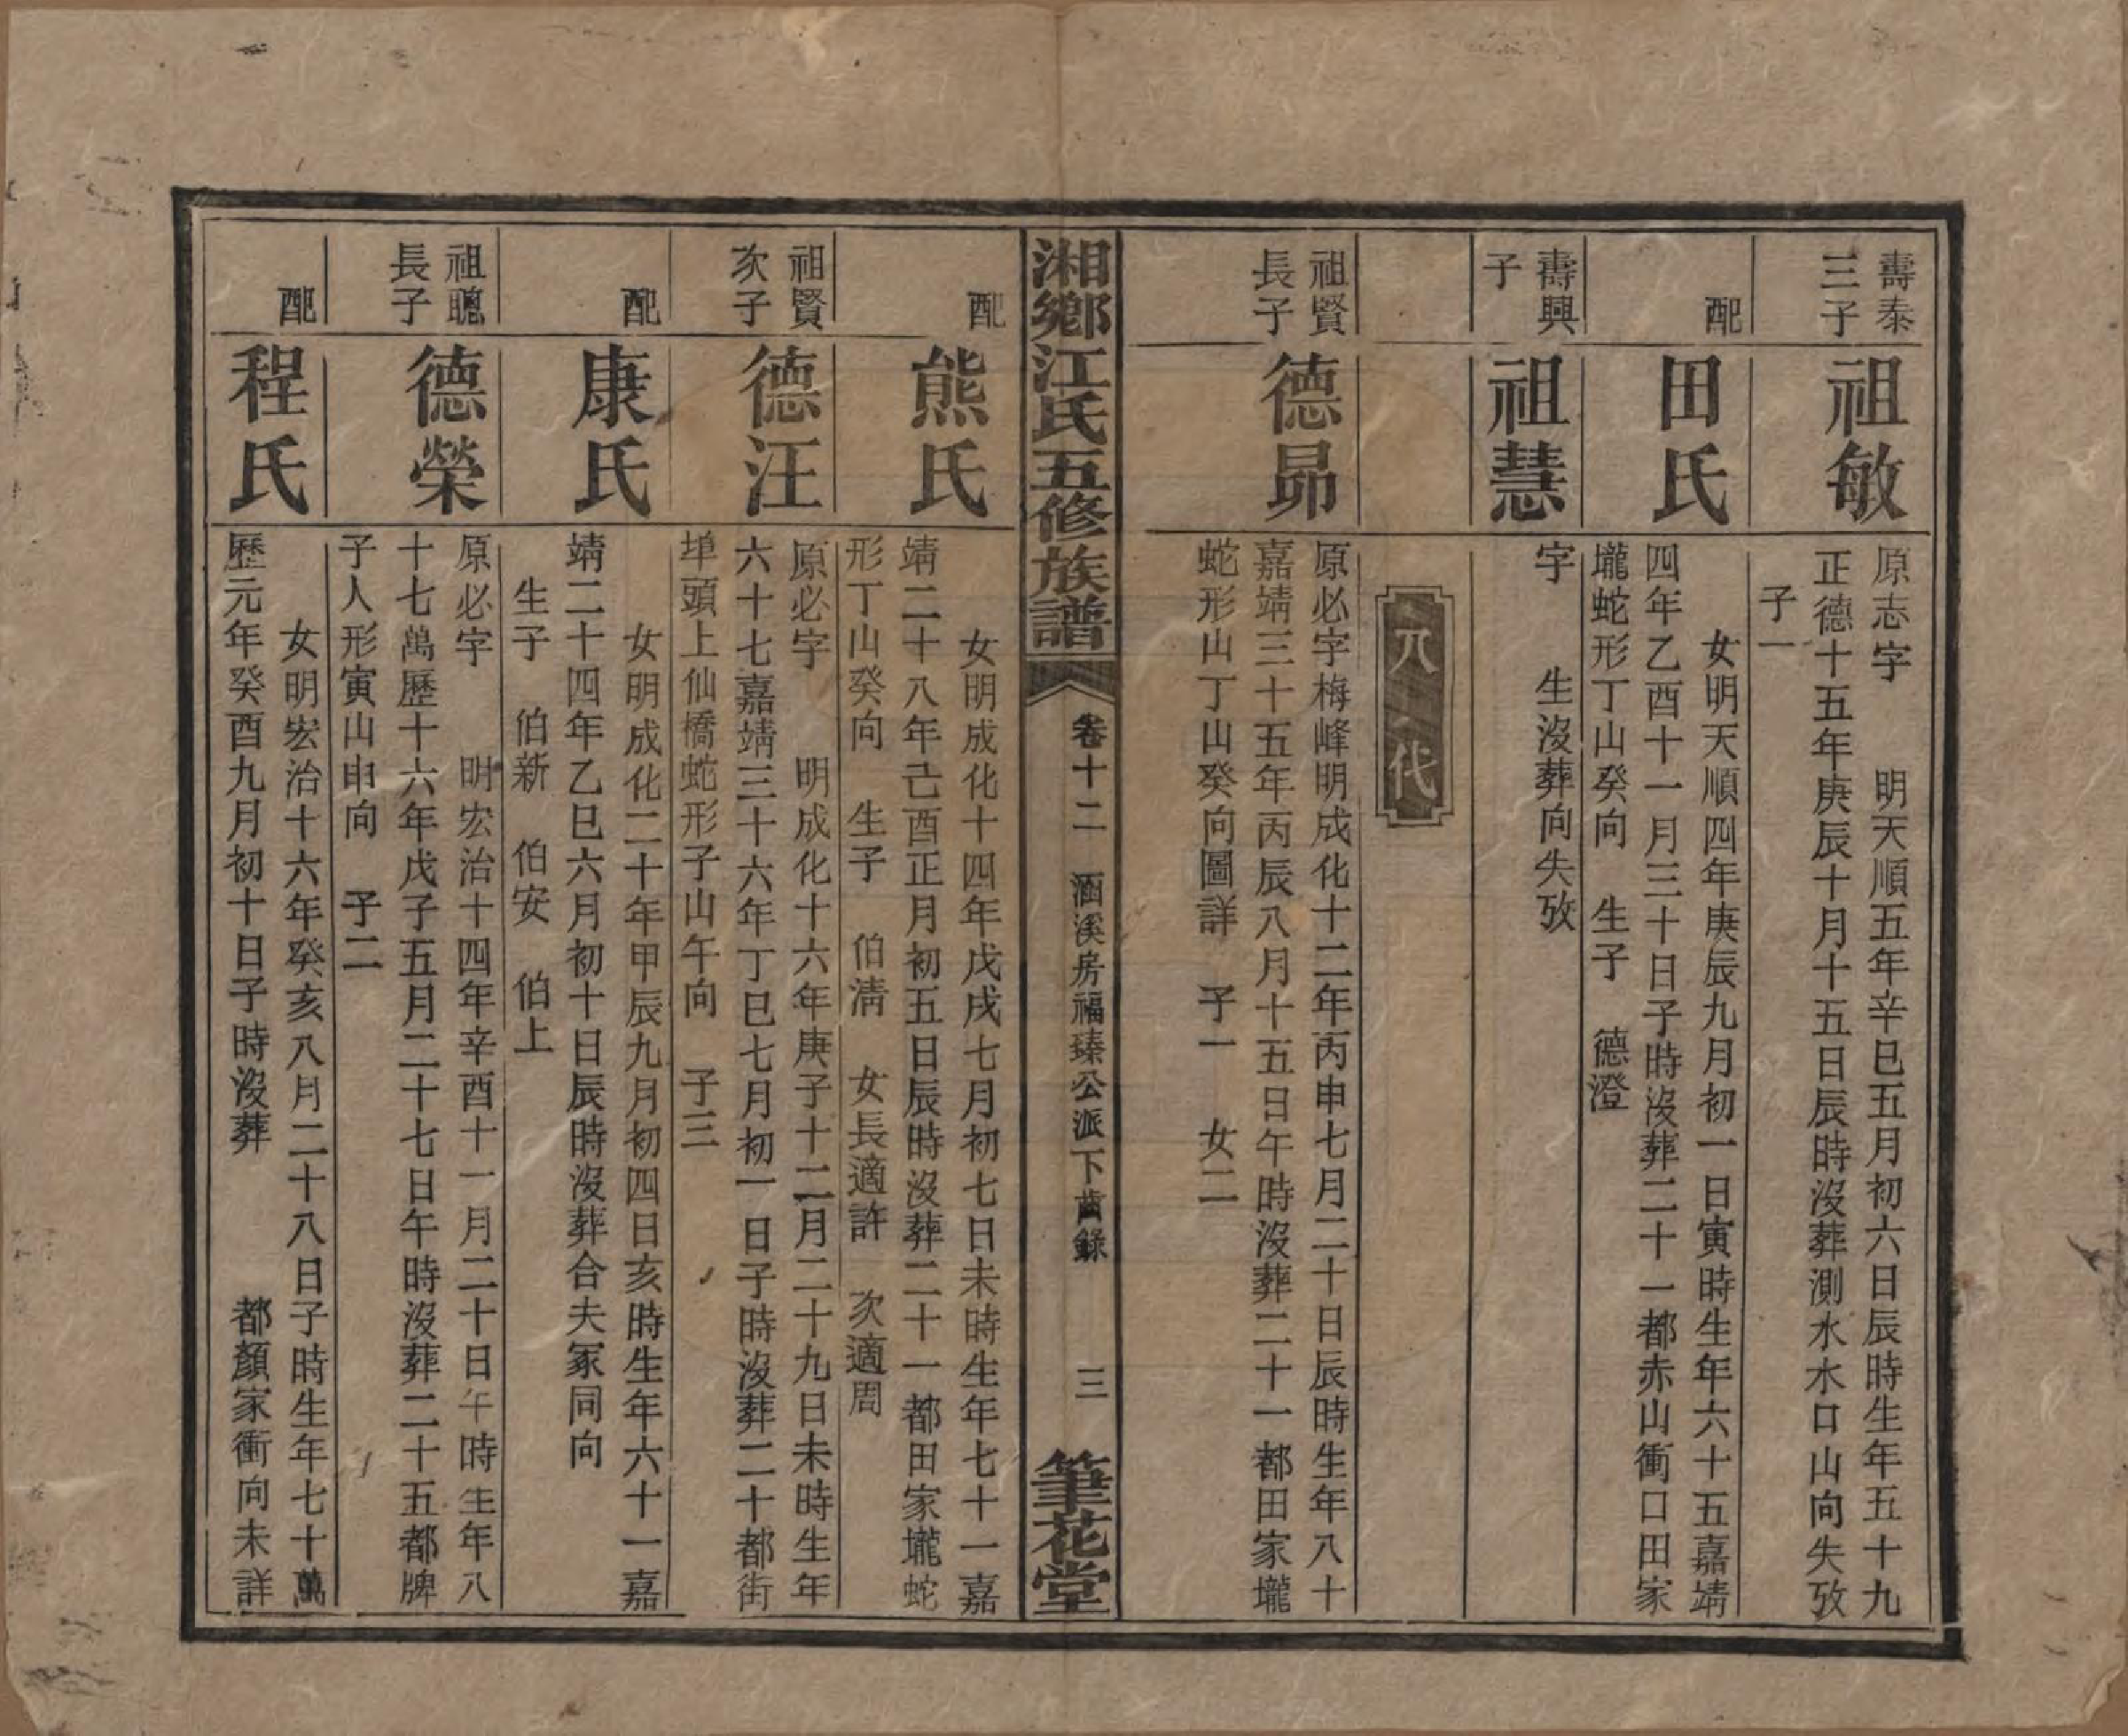 壽泰
三子
祖敏
原志字　明天順五年辛巳五月初六日辰時生年五十九
正德十五年庚辰十月十五日辰時沒葬測水水口山向失攷
子一
配
田氏
女明天順四年庚辰九月初一日寅時生年六十五嘉靖
四年乙酉十一月三十日子時沒葬二十一都赤山衝口田家
壠蛇形丁山癸向　生子　德澄
壽興
子
祖慧
字　　生沒葬向失攷
八代
祖賢
長子
德昴
原必字梅峰明成化十二年丙申七月二十日辰時生年八十
嘉靖三十五年丙辰八月十五日午時沒葬二十一都田家壠
蛇形山丁山癸向圖詳　子一　女二
湘鄉江氏五修族譜
卷十二　涵溪房福臻公派下齒錄　三
筆花堂
配
熊氏
女明成化十四年戊戌七月初七日未時生年七十一嘉
靖二十八年己酉正月初五日辰時沒葬二十一都田家壠蛇
形丁山癸向　生子　伯清　女長適許　次適周
祖賢
次子
德汪
原必字　明成化十六年庚子十二月二十九日未時生年
六十七嘉靖三十六年丁巳七月初一日子時沒葬二十都街
埠頭上仙橋蛇形子山午向　子三
配
康氏
女明成化二十年甲辰九月初四日亥時生年六十一嘉
靖二十四年乙巳六月初十日辰時沒葬合夫冢同向
生子　伯新　伯安　伯上
祖聰
長子
德榮
原必字　明宏治十四年辛酉十一月二十日午時生年八
十七萬歷十六年戊子五月二十七日午時沒葬二十五都牌
子人形寅山申向　子二
配
程氏
女明宏治十六年癸亥八月二十八日子時生年七十萬
歷元年癸酉九月初十日子時沒葬　　都顏家衝向未詳